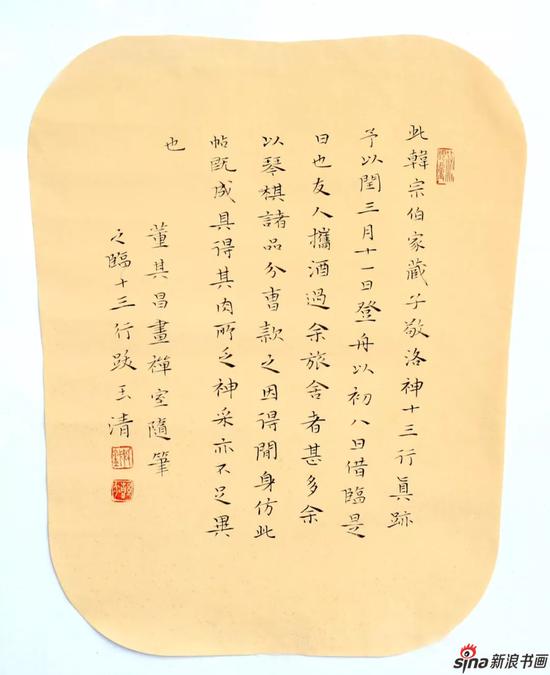 此韓宗伯家藏子敬洛神十三行真跡
予以閏三月十一日登舟以初八日借臨是
日也友人攜酒過余旅舍者甚多余
以琴棋諸品分曹款之因得閒身仿此
帖既成具得其肉所乏神采亦不足異
也
董其昌畫禪室隨筆
之臨十三行跋 玉清
sina新浪书画